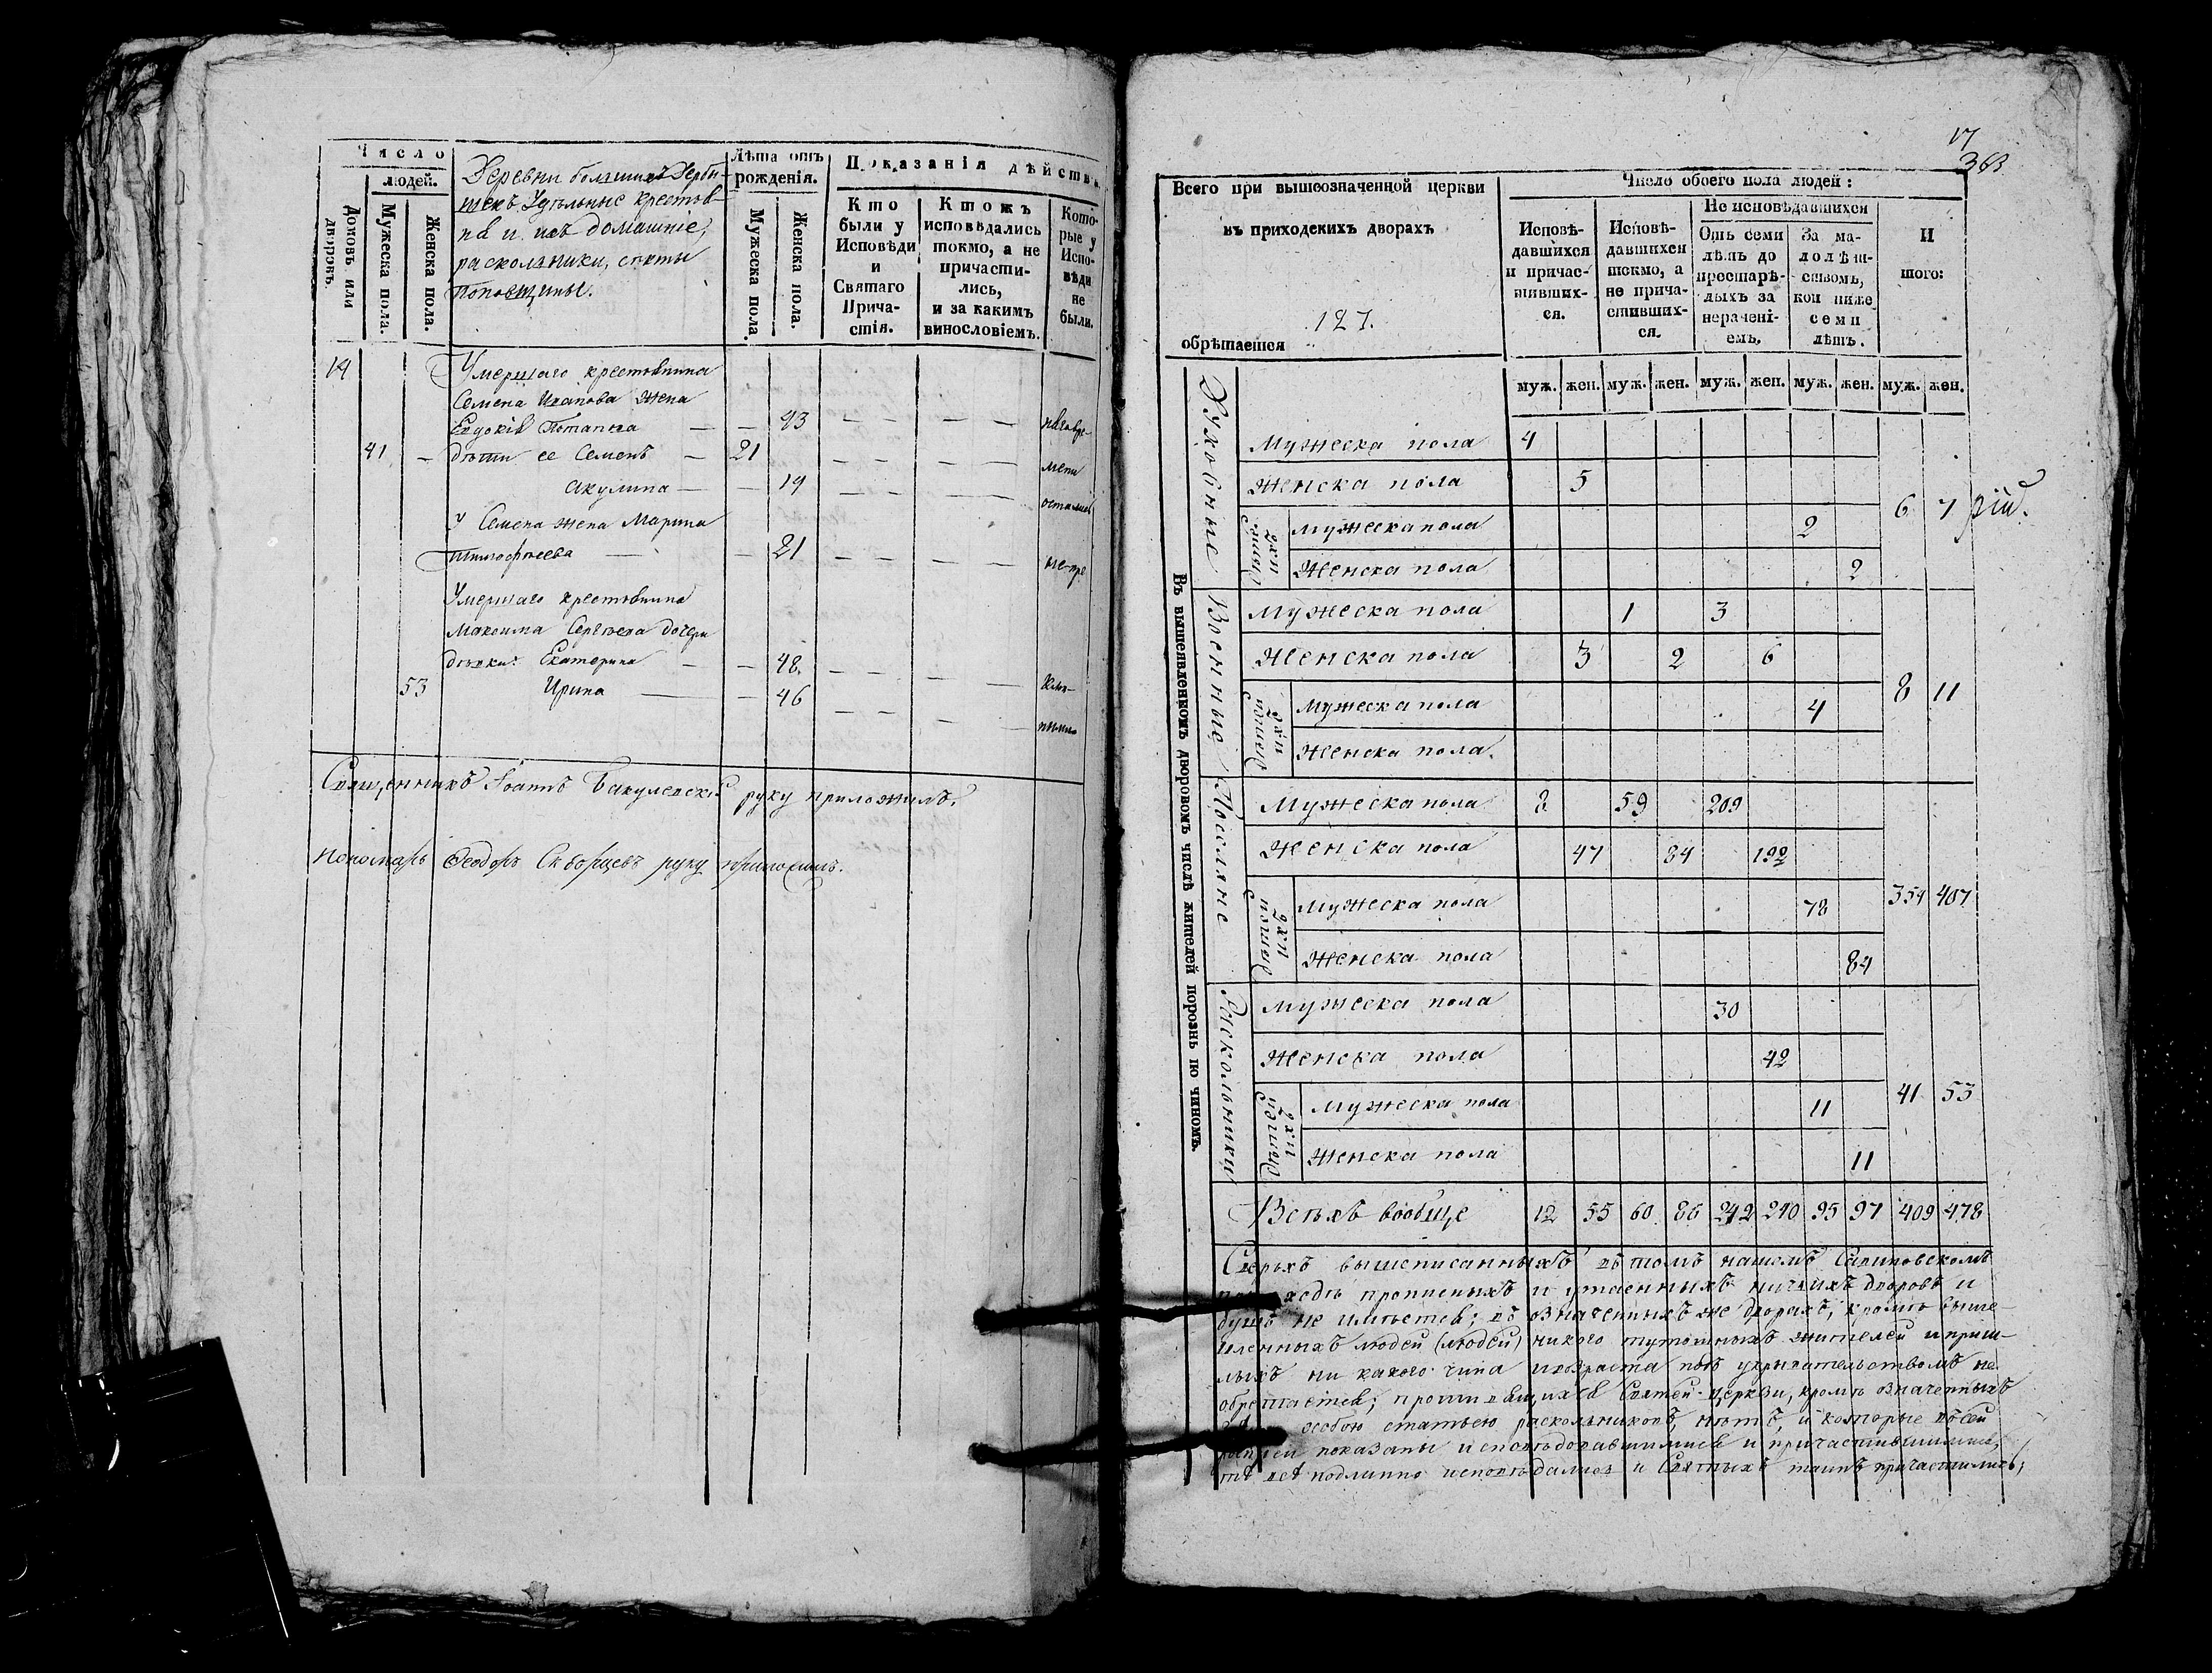 Число
людей.
Домовъ или дворовъ.
Мужеска пола.
Женска пола.
Деревни большихъ Серби-
шекъ Удѣльные крестья-
не и ихъ домашніе,
раскольники, секты
поповщины.
Лѣта отъ рожденія.
Мужеска пола.
Женска пола.
Показанія дѣйства.
Кто были у Исповѣди и Святаго Прича-стія.
Кто жъ исповѣдались токмо, а не причасти-лись, и за какимъ винословіемъ.
Кото-рые у Испо-вѣди не были.
14 Умершаго крестьянина
Семена жена
Евдокія Потапова — — 43 — — — —
41 — дѣти ее Семенъ — 21 — — — —
Акулина — — 19 — — — —
У Семена жена Марина
Тимофеева — — 21 — — — —
Умершаго крестьянина
Максима Сергѣева дочери
дѣвки: Екатерина — — 48. — — — —
53 Ирина — — 46 — — — —
Священникъ Іоаннъ Бакулевскій руку приложилъ.
Пономарь Ѳеодоръ Скворцевъ руку приложилъ.
17
363
Всего при вышеозначенной церкви
въ приходскихъ дворахъ
обрѣтается 127.
Число обоего пола людей:
Исповѣ-давшихся и причас-тивших-ся.
Исповѣ-давшихся токмо, а не прича-стивших-ся.
Не исповѣдавшихся
Отъ семи лѣтъ до престарѣ-лыхъ за нерачені-емъ.
За ма-лолѣт-ствомъ, кои ниже семи лѣтъ.
И того:
муж. жен. муж. жен. муж. жен. муж. жен. муж. жен.
Въ вышеявленномъ дворовомъ числѣ жителей порознь по чиномъ.
Духовные
Мужеска пола 4
Женска пола 5
Дѣтей ихъ
Мужеска пола 2
Женска пола 2
6 7
Военные
Мужеска пола 1 3
Женска пола 3 2 6
Дѣтей ихъ
Мужеска пола 4
Женска пола.
8 11
Поселяне
Мужеска пола 8 59 209
Женска пола 47 84 192
Дѣтей ихъ
Мужеска пола 78
Женска пола 84
354 407
Раскольники
Мужеска пола 30
Женска пола 42
Дѣтей ихъ
Мужеска пола 11
Женска пола 11
41 53
Всѣхъ вообще 12 55 60 86 242 240 95 97 409 478
Сверхъ вышеписанныхъ въ томъ нашемъ
приходѣ прописныхъ и утаенныхъ ничьихъ дворовъ и
душъ не имѣется; въ означенныхъ же дворахъ, кромѣ выше-
людей (людей) никого тутошныхъ жителей и приш-
лыхъ ни какого чина и возраста подъ укрывательствомъ не
обретается; противящихся Святей церкви, кромѣ означенныхъ
особою статьею раскольниковъ, нѣтъ, и которые въ сей
росписи показаны исповѣдовавшимися и причастившимися,
тѣ всѣ подлинно исповѣдались и Святыхъ таинъ причастились;